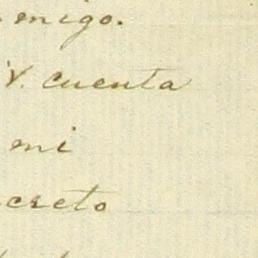 migo.
V. cuenta
mi
creto